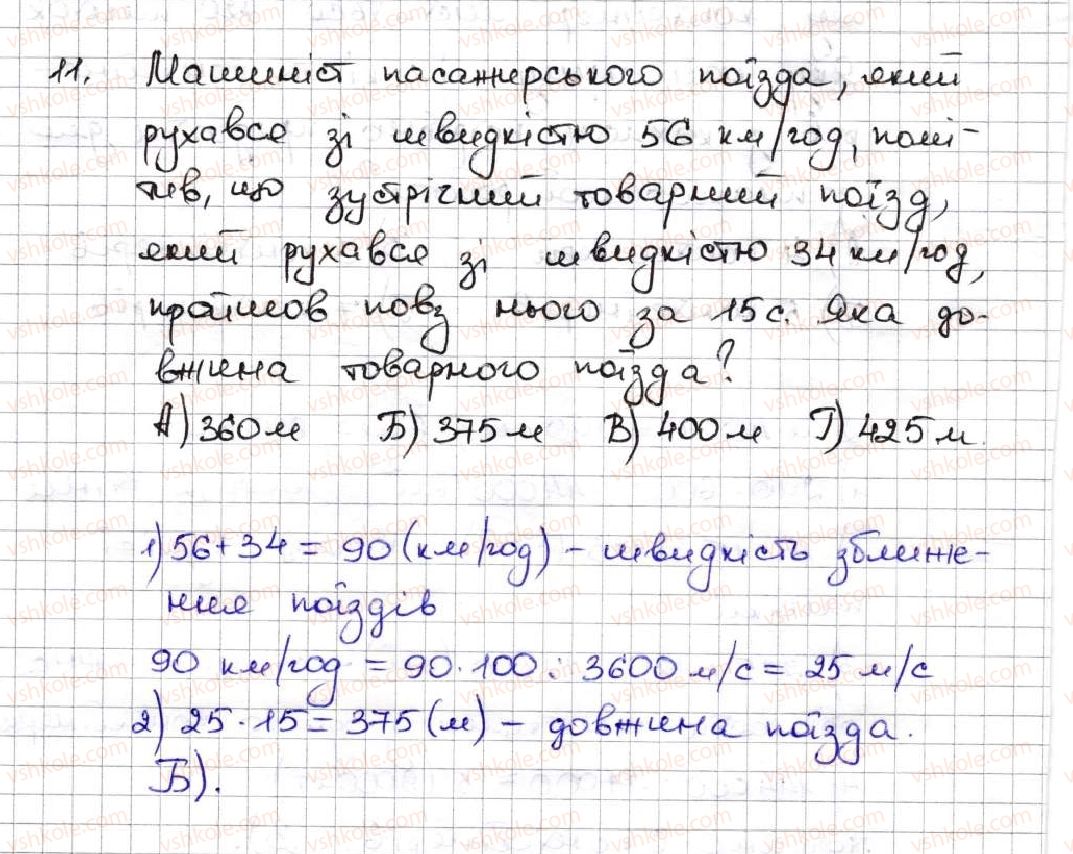 11. Машиніст пасажирського поїзда, який
рухався зі швидкістю 56 км/год, помі-
тив, що зустрічний товарний поїзд,
який рухався зі швидкістю 34 км/год,
пройшов повз нього за 15 с. Яка до-
вжина товарного поїзда?
А) 360 м Б) 375 м В) 400 м Г) 425 м.
1) 56 + 34 = 90 (км/год) - швидкість зближе-
ння поїздів
90 км/год = 90 · 100 : 3600 м/с = 25 м/с
2) 25 · 15 = 375 (м) - довжина поїзда.
Б).